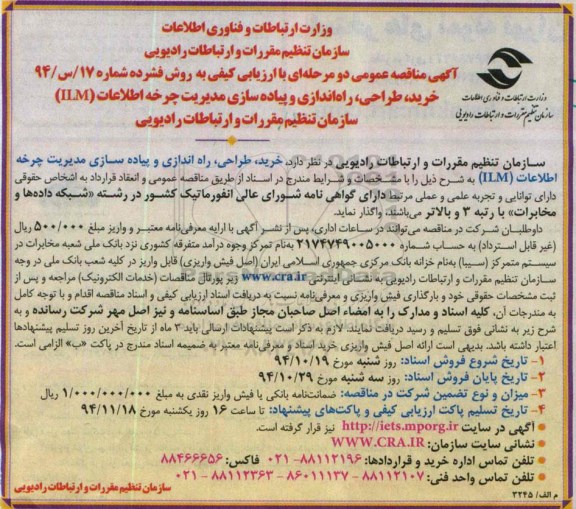 وزارت ارتباطات و فناوری اطلاعات
سازمان تنظیم مقررات و ارتباطات رادیویی
آگهی مناقصه عمومی دو مرحله‌ای با ارزیابی کیفی به روش فشرده شماره ۱۷/س/۹۴
خرید، طراحی، راه‌اندازی و پیاده سازی مدیریت چرخه اطلاعات (ILM)
سازمان تنظیم مقررات و ارتباطات رادیویی
وزارت ارتباطات و فناوری اطلاعات
سازمان تنظیم مقررات و ارتباطات رادیویی
سازمان تنظیم مقررات و ارتباطات رادیویی در نظر دارد، خرید، طراحی، راه اندازی و پیاده سازی مدیریت چرخه
اطلاعات (ILM) به شرح ذیل را با مشخصات و شرایط مندرج در اسناد از طریق مناقصه عمومی و انعقاد قرارداد به اشخاص حقوقی
دارای توانایی و تجربه علمی و عملی مرتبط دارای گواهی نامه شورای عالی انفورماتیک کشور در رشته «شبکه داده‌ها و
مخابرات» با رتبه ۳ و بالاتر می‌باشند، واگذار نماید.
داوطلبان شرکت در مناقصه می‌توانند در ساعات اداری، پس از نشر آگهی با ارایه معرفی‌نامه معتبر و واریز مبلغ ۵۰۰/۰۰۰ ریال
(غیر قابل استرداد) به حساب شماره ۲۱۷۴۷۴۹۰۰۵۰۰۰ به‌نام تمرکز وجوه درآمد متفرقه کشوری نزد بانک ملی شعبه مخابرات در
سیستم متمرکز (سیبا) به‌نام خزانه بانک مرکزی جمهوری اسلامی ایران (اصل فیش واریزی) قابل واریز در کلیه شعب بانک ملی در وجه
سازمان تنظیم مقررات و ارتباطات رادیویی به نشانی اینترنتی www.cra.ir زیر پورتال مناقصات (خدمات الکترونیک) مراجعه و پس از
ثبت مشخصات حقوقی خود و بارگذاری فیش واریزی و معرفی‌نامه نسبت به دریافت اسناد ارزیابی کیفی و اسناد مناقصه اقدام و با توجه کامل
به مندرجات آن، کلیه اسناد و مدارک را به امضاء اصل صاحبان مجاز طبق اساسنامه و نیز اصل مهر شرکت رسانده و به
شرح زیر به نشانی فوق تسلیم و رسید دریافت نمایند. لازم به ذکر است پیشنهادات ارسالی باید ۳ ماه از تاریخ آخرین روز تسلیم پیشنهادها
اعتبار داشته باشد. بدیهی است ارائه اصل فیش واریزی خرید اسناد و معرفی‌نامه معتبر به ضمیمه اسناد مندرج در پاکت «ب» الزامی است.
۱- تاریخ شروع فروش اسناد: روز شنبه مورخ ۹۴/۱۰/۱۹
۲- تاریخ پایان فروش اسناد: روز سه شنبه مورخ ۹۴/۱۰/۲۹
۳- میزان و نوع تضمین شرکت در مناقصه: ضمانت‌نامه بانکی یا فیش واریز نقدی به مبلغ ۱/۰۰۰/۰۰۰/۰۰۰ ریال
۴- تاریخ تسلیم پاکت ارزیابی کیفی و پاکت‌های پیشنهاد: تا ساعت ۱۶ روز یکشنبه مورخ ۹۴/۱۱/۱۸
● آگهی در سایت http://iets.mporg.ir نیز قرار گرفته است.
● نشانی سایت سازمان: WWW.CRA.IR
● تلفن تماس اداره خرید و قراردادها: ۸۸۱۱۲۱۹۶-۰۲۱ فاکس: ۸۸۴۶۶۶۵۶
● تلفن تماس واحد فنی: ۸۸۱۱۲۱۰۷ - ۸۶۰۱۱۱۳۷ - ۸۸۱۱۲۳۶۳ - ۰۲۱
م الف/ ۳۲۴۵
سازمان تنظیم مقررات و ارتباطات رادیویی